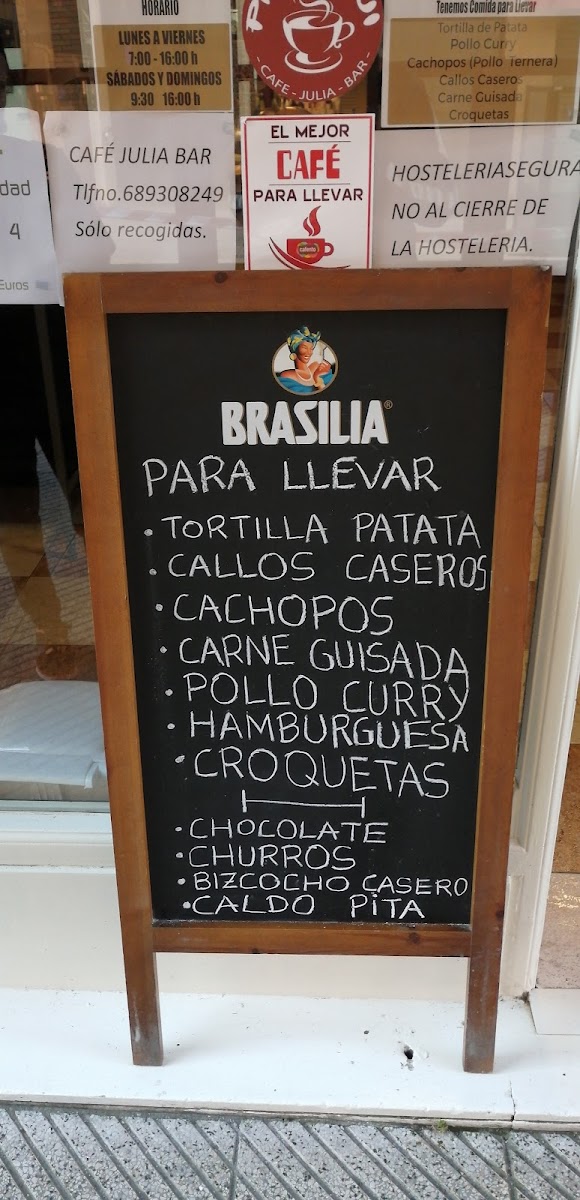 HORARIO
LUNES A VIERNES
7:00 - 16:00 h
SÁBADOS Y DOMINGOS
9:30 16:00 h
- CAFE - JULIA - BAR -
Tenemos Comida para Llevar
Tortilla de Patata
Pollo Curry
Cachopos (Pollo Ternera)
Callos Caseros
Carne Guisada
Croquetas
dad
4
Euros
CAFÉ JULIA BAR
Tlfno.689308249
Sólo recogidas.
EL MEJOR
CAFÉ
PARA LLEVAR
HOSTELERIASEGURA
NO AL CIERRE DE
LA HOSTELERIA.
BRASILIA®
PARA LLEVAR
• TORTILLA PATATA
• CALLOS CASEROS
• CACHOPOS
• CARNE GUISADA
• POLLO CURRY
• HAMBURGUESA
• CROQUETAS
• CHOCOLATE
• CHURROS
• BIZCOCHO CASERO
• CALDO PiTA